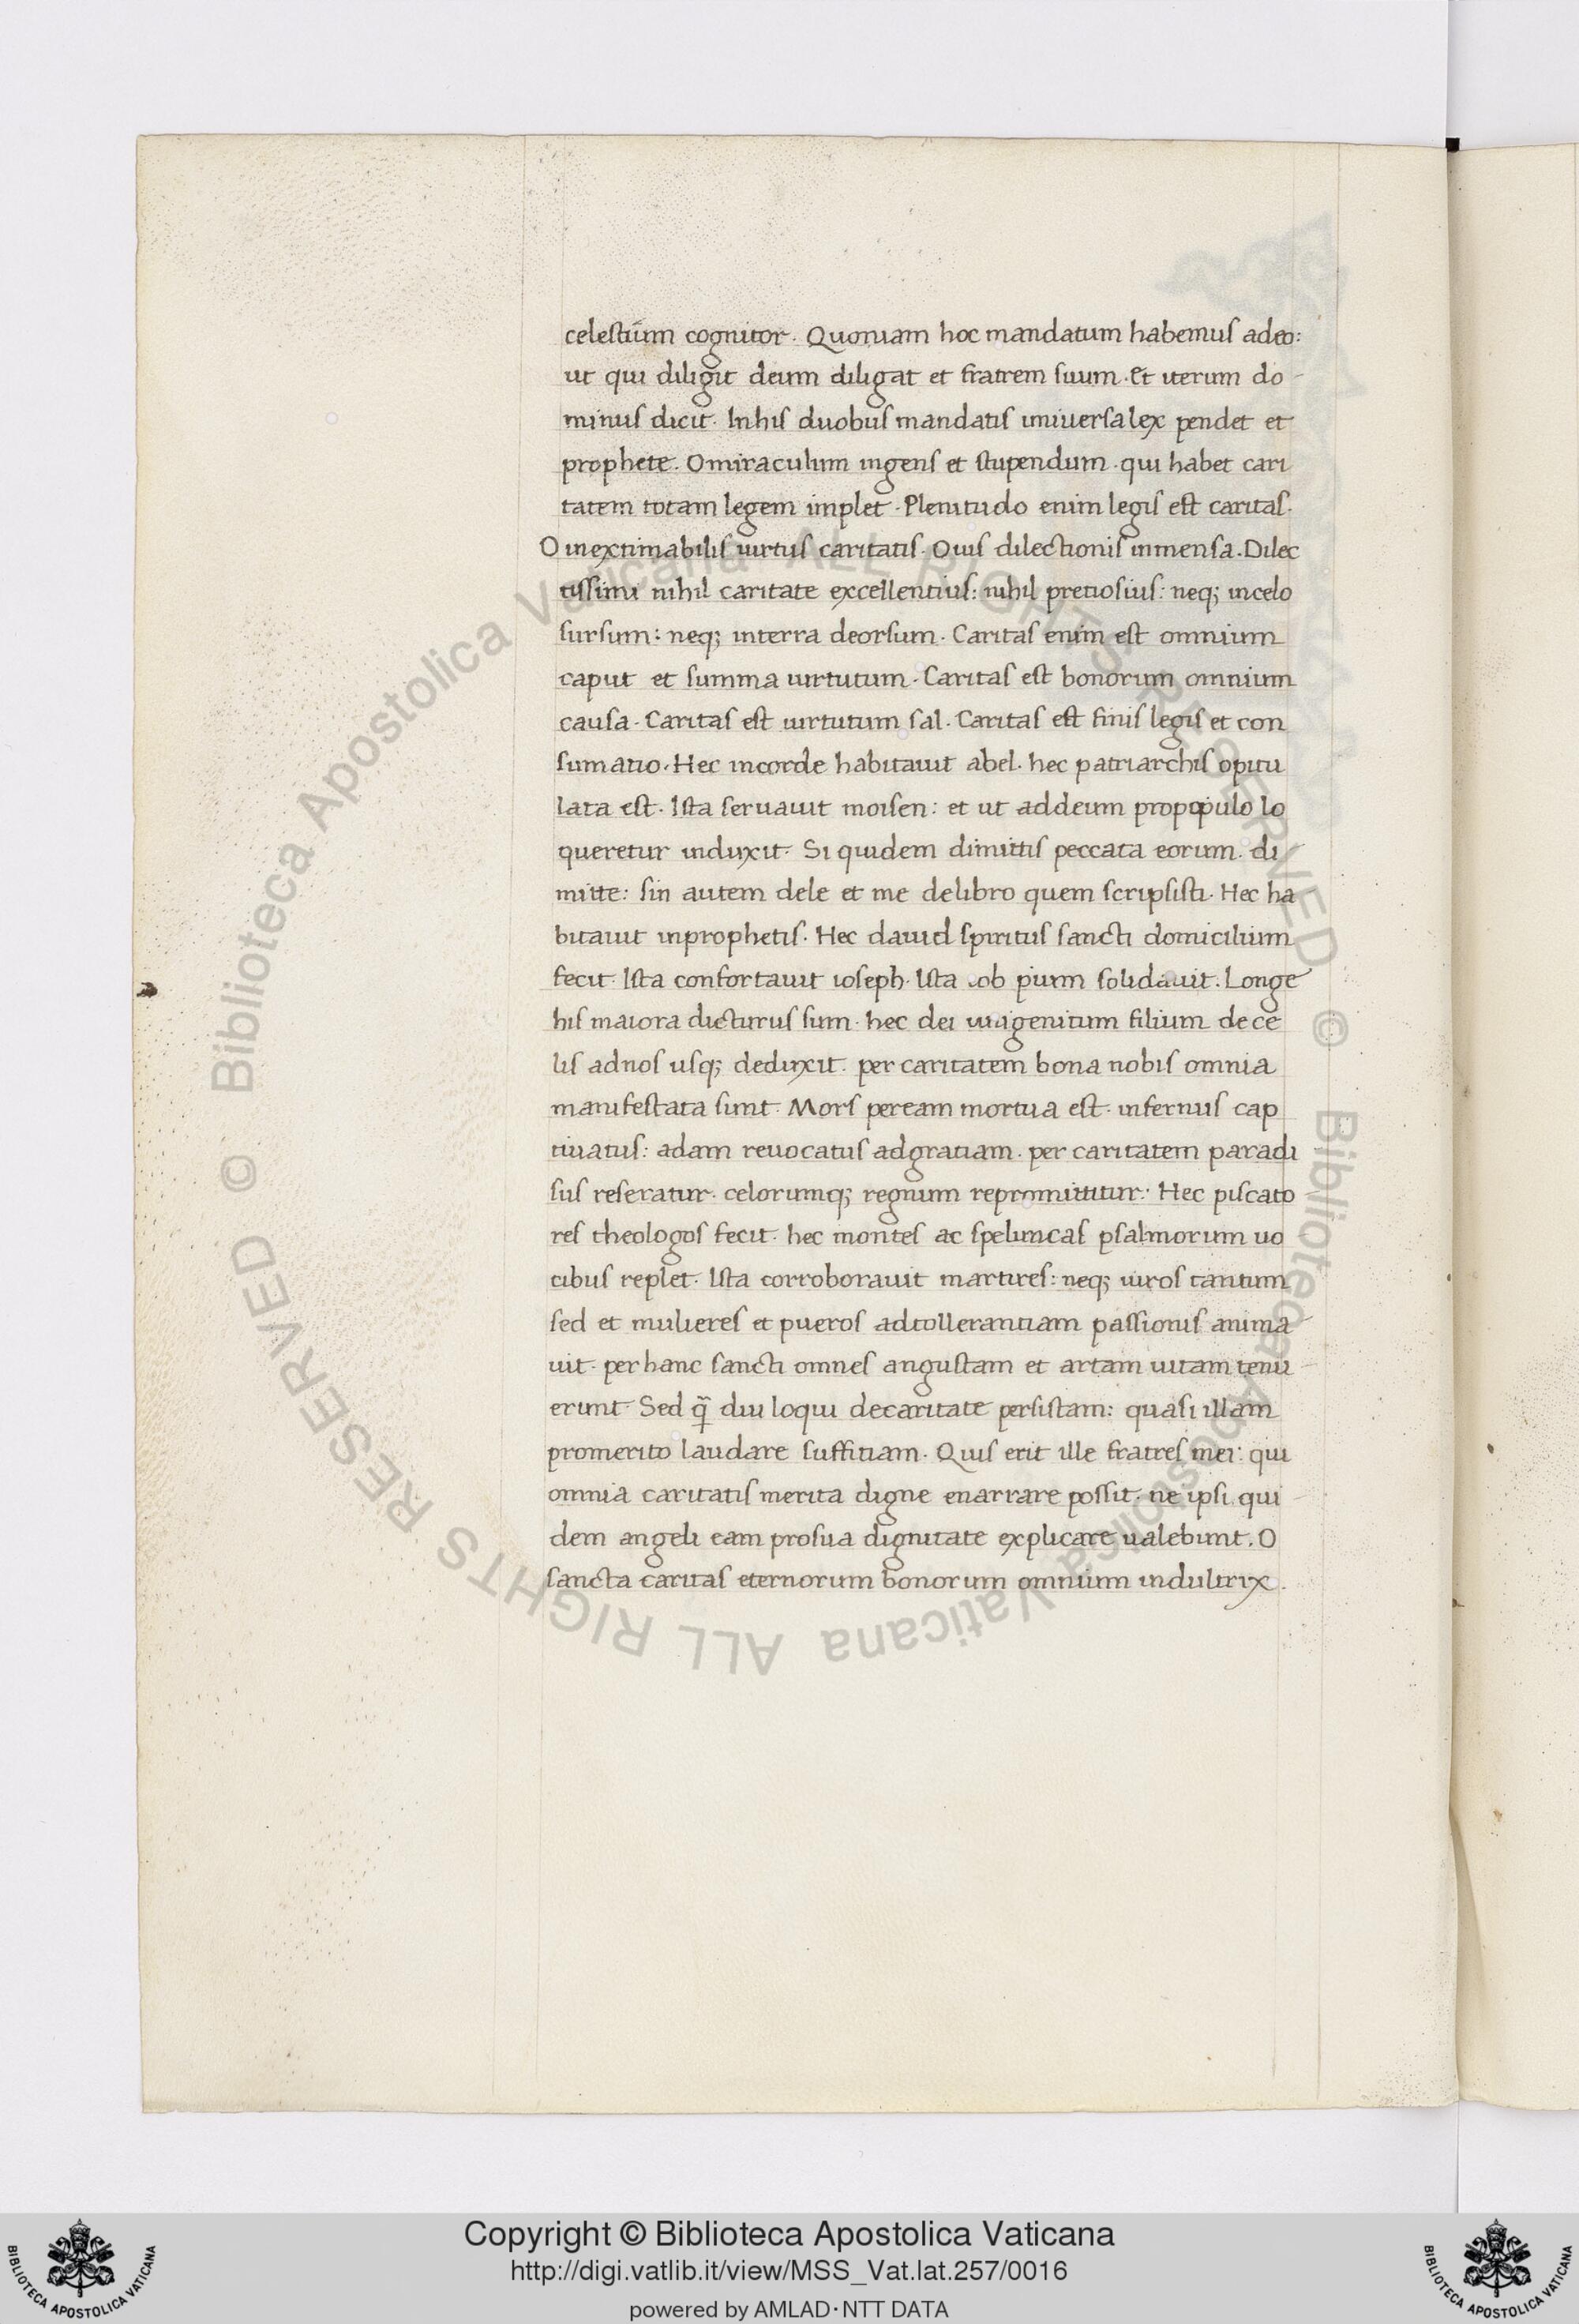 celestium cognitor. Quoniam hoc mandatum habemus adeo:
ut qui diligit deum diligat et fratrem suum. Et iterum do-
minus dicit. Inhis duobus mandatis universa lex pendet et
prophete. O miraculum ingens et stupendum. qui habet cari
tatem totam legem implet. Plenitudo enim legis est caritas.
O inextimabilis uirtus caritatis. O uis dilectionis inmensa. Dilec
tissimi nihil caritate excellentius: nihil pretiosius: neq; incelo
sursum: neq; interra deorsum. Caritas enim est omnium
caput et summa uirtutum. Caritas est bonorum omnium
causa. Caritas est uirtutum sal. Caritas est finis legis et con
sumatio. Hec incorde habitauit abel. hec patriarchis opitu
lata est. Ista seruauit moisen: et ut addeum propopulo lo
queretur induxit. Si quidem dimittis peccata eorum. di
mitte: sin autem dele et me delibro quem scripsisti. Hec ha
bitauit inprophetis. Hec dauid spiritus sancti domicilium
fecit. Ista confortauit ioseph. Ista iob pium solidauit. Longe
his maiora dicturus sum. hec dei unigenitum filium dece
lis adnos usq; deduxit. per caritatem bona nobis omnia
manifestata sunt. Mors peream mortua est. infernus cap
tiuatus: adam reuocatus adgratiam. per caritatem paradi
sus reseratur. celorumq; regnum repromittitur: Hec piscato
res theologos fecit. hec montes ac speluncas psalmorum uo
cibus replet. Ista corroborauit martires: neq; uiros tantum
sed et mulieres et pueros adtollerantiam passionis anima
uit. per hanc sancti omnes angustam et artam uitam tenu
erunt. Sed q̃ diu loqui decaritate persistam: quasi illam
promerito laudare suffitiam. Quis erit ille fratres mei: qui
omnia caritatis merita digne enarrare possit. ne ipsi qui
dem angeli eam prosua dignitate explicare ualebunt. O
sancta caritas eternorum bonorum omnium indultrix.
© Biblioteca Apostolica Vaticana ALL RIGHTS RESERVED
© Biblioteca Apostolica Vaticana ALL RIGHTS RESERVED
Copyright © Biblioteca Apostolica Vaticana
http://digi.vatlib.it/view/MSS_Vat.lat.257/0016
powered by AMLAD·NTT DATA
BIBLIOTECA APOSTOLICA VATICANA
BIBLIOTECA APOSTOLICA VATICANA